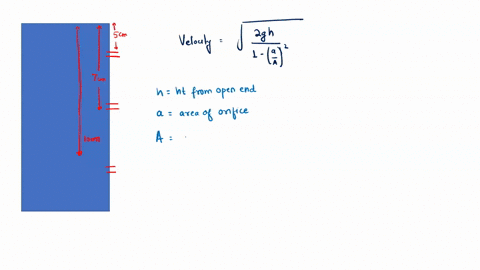 5cm
Velocity = √(2gh / (1 - (a/A)²))
h = ht from open end
a = area of orifice
A =